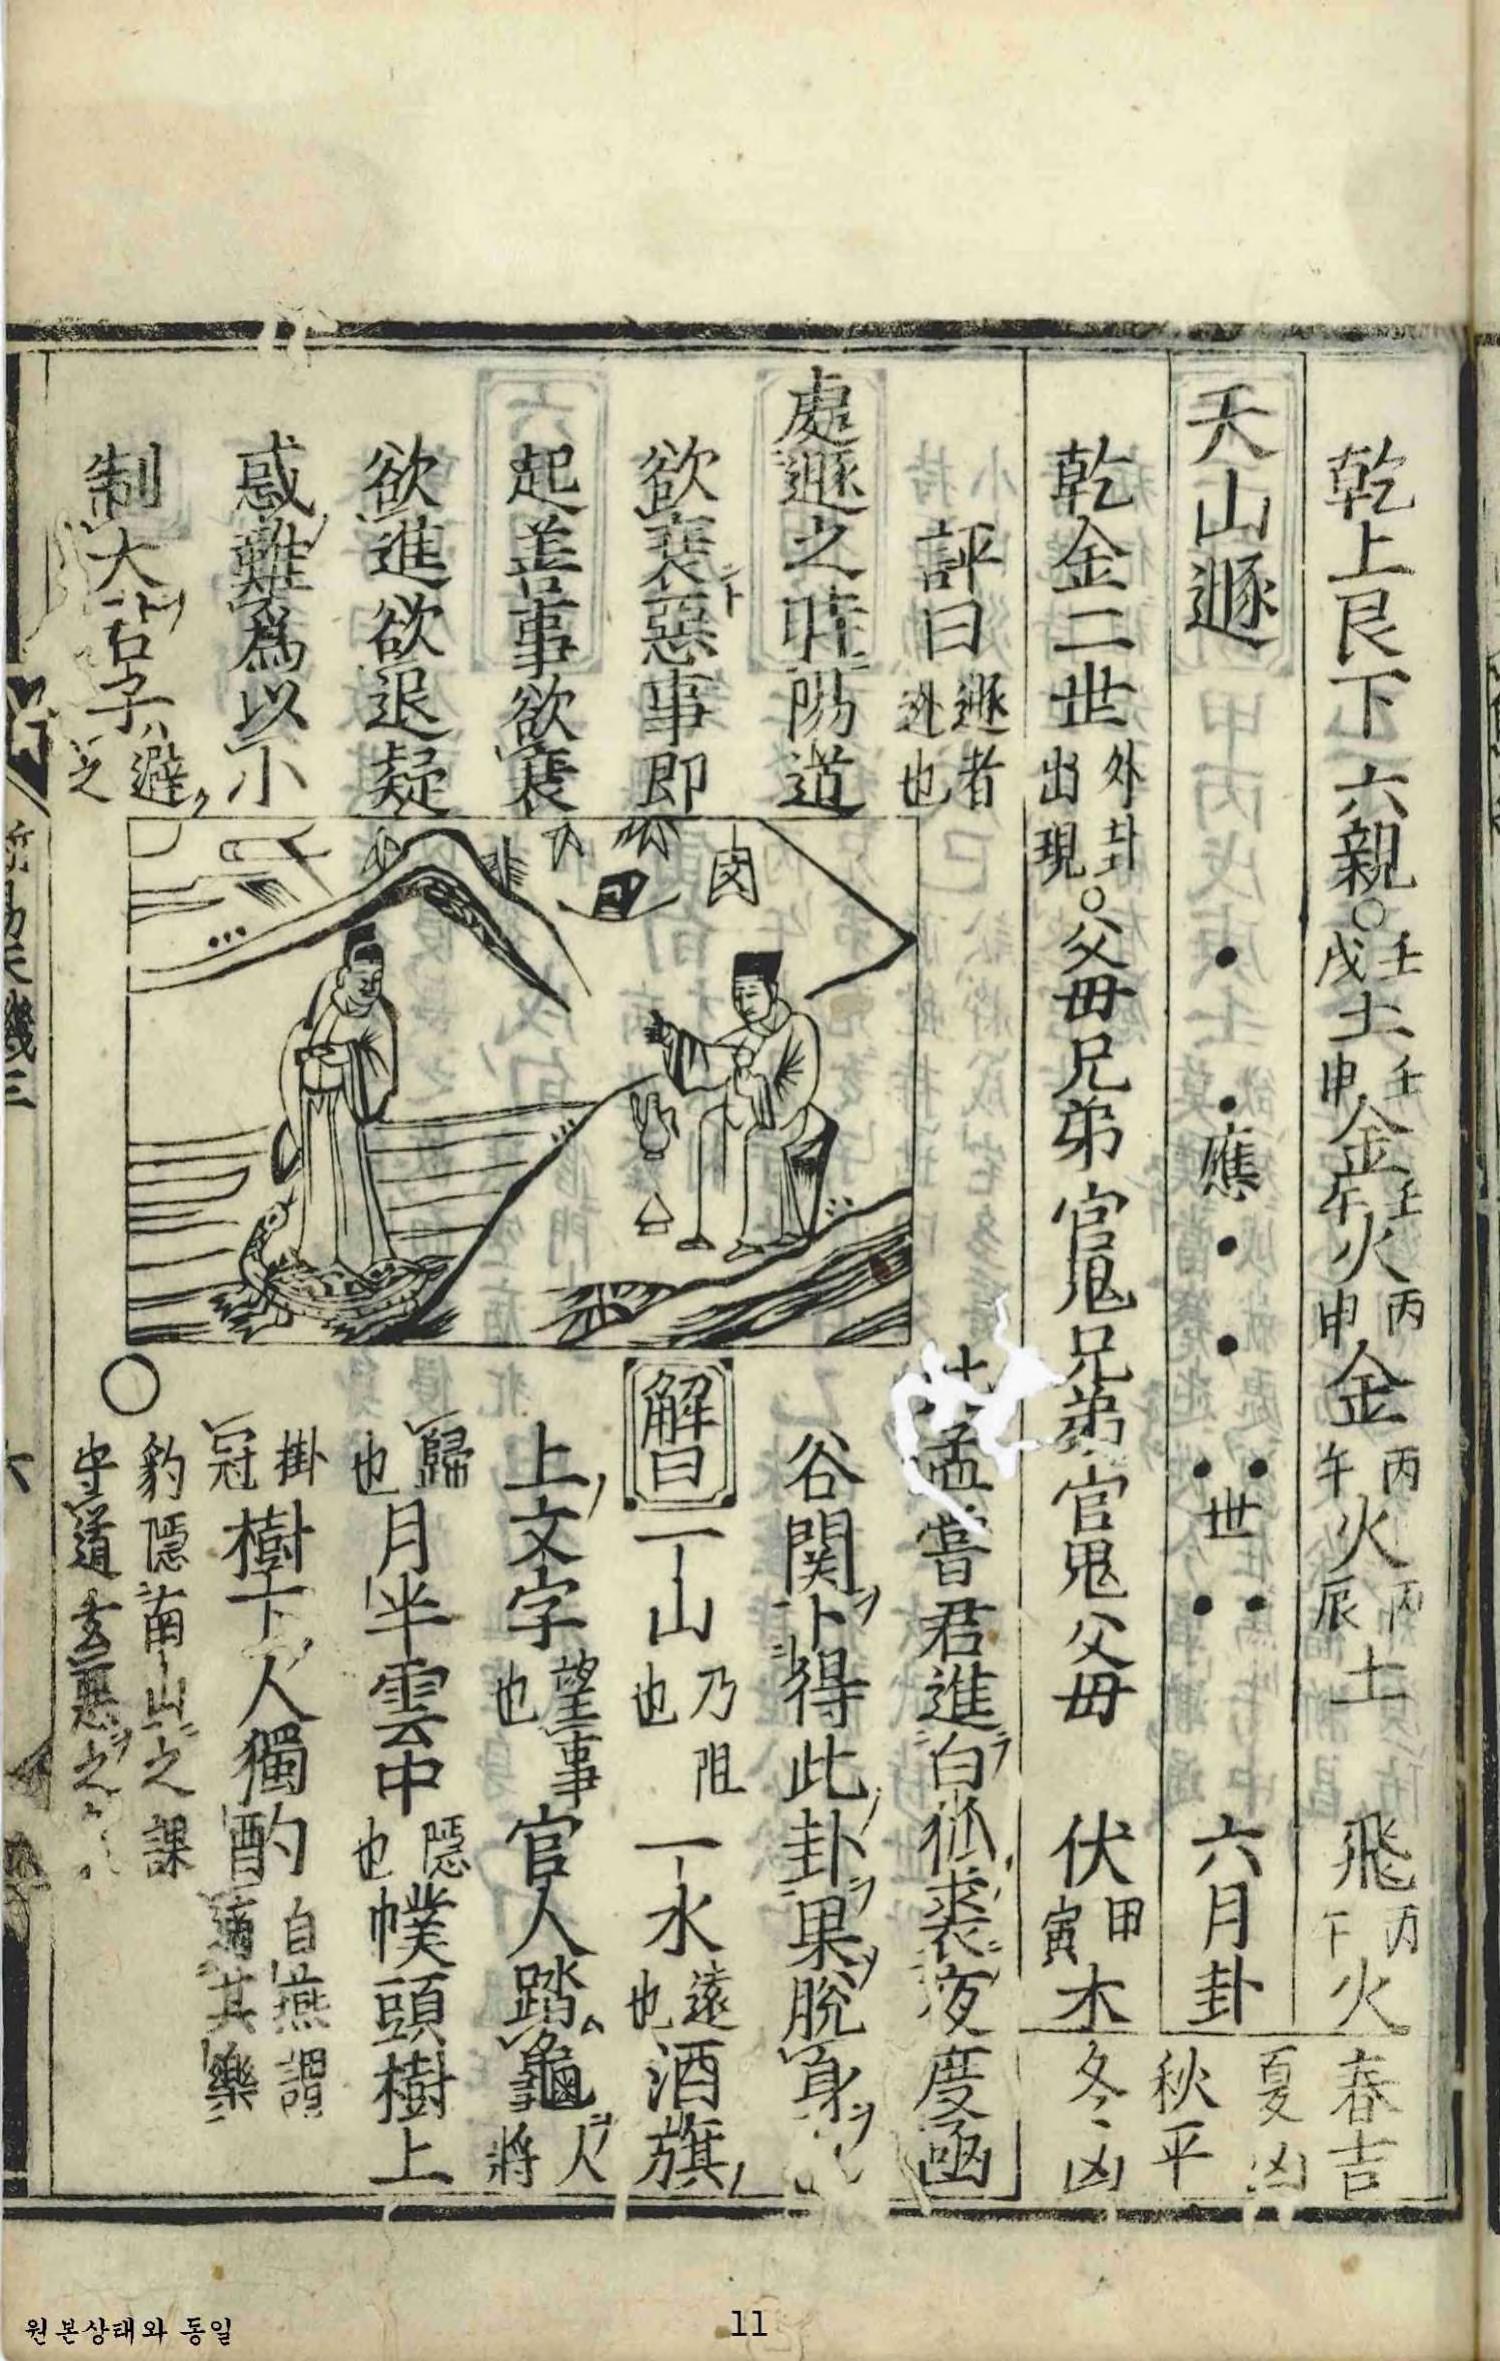 乾上艮下六親○壬戌土壬申金壬午火丙申金丙午火丙辰土 飛丙午火 春吉
天山遯 應 世 六月卦 夏凶 秋平
乾金二世外卦出現○父母兄弟官鬼兄弟官鬼父母 伏甲寅木 冬凶
評曰遯者逃也
處遯之時陽道
欲衰惡事即
起善事欲衰
欲進欲退疑
惑難為以小
制大君子避之
酉
孟嘗君進白狐裘夜度凾
谷関卜得此卦果脱身
解曰一山乃阻也一水遠也酒旗
上文字望事也官人踏龜人將
歸也月半雲中隠也幞頭樹上
掛冠樹下人獨酌自燕謂適其樂
○豹隠南山之課守道玄惡之
易天機三
六
원본상태와 동일
11